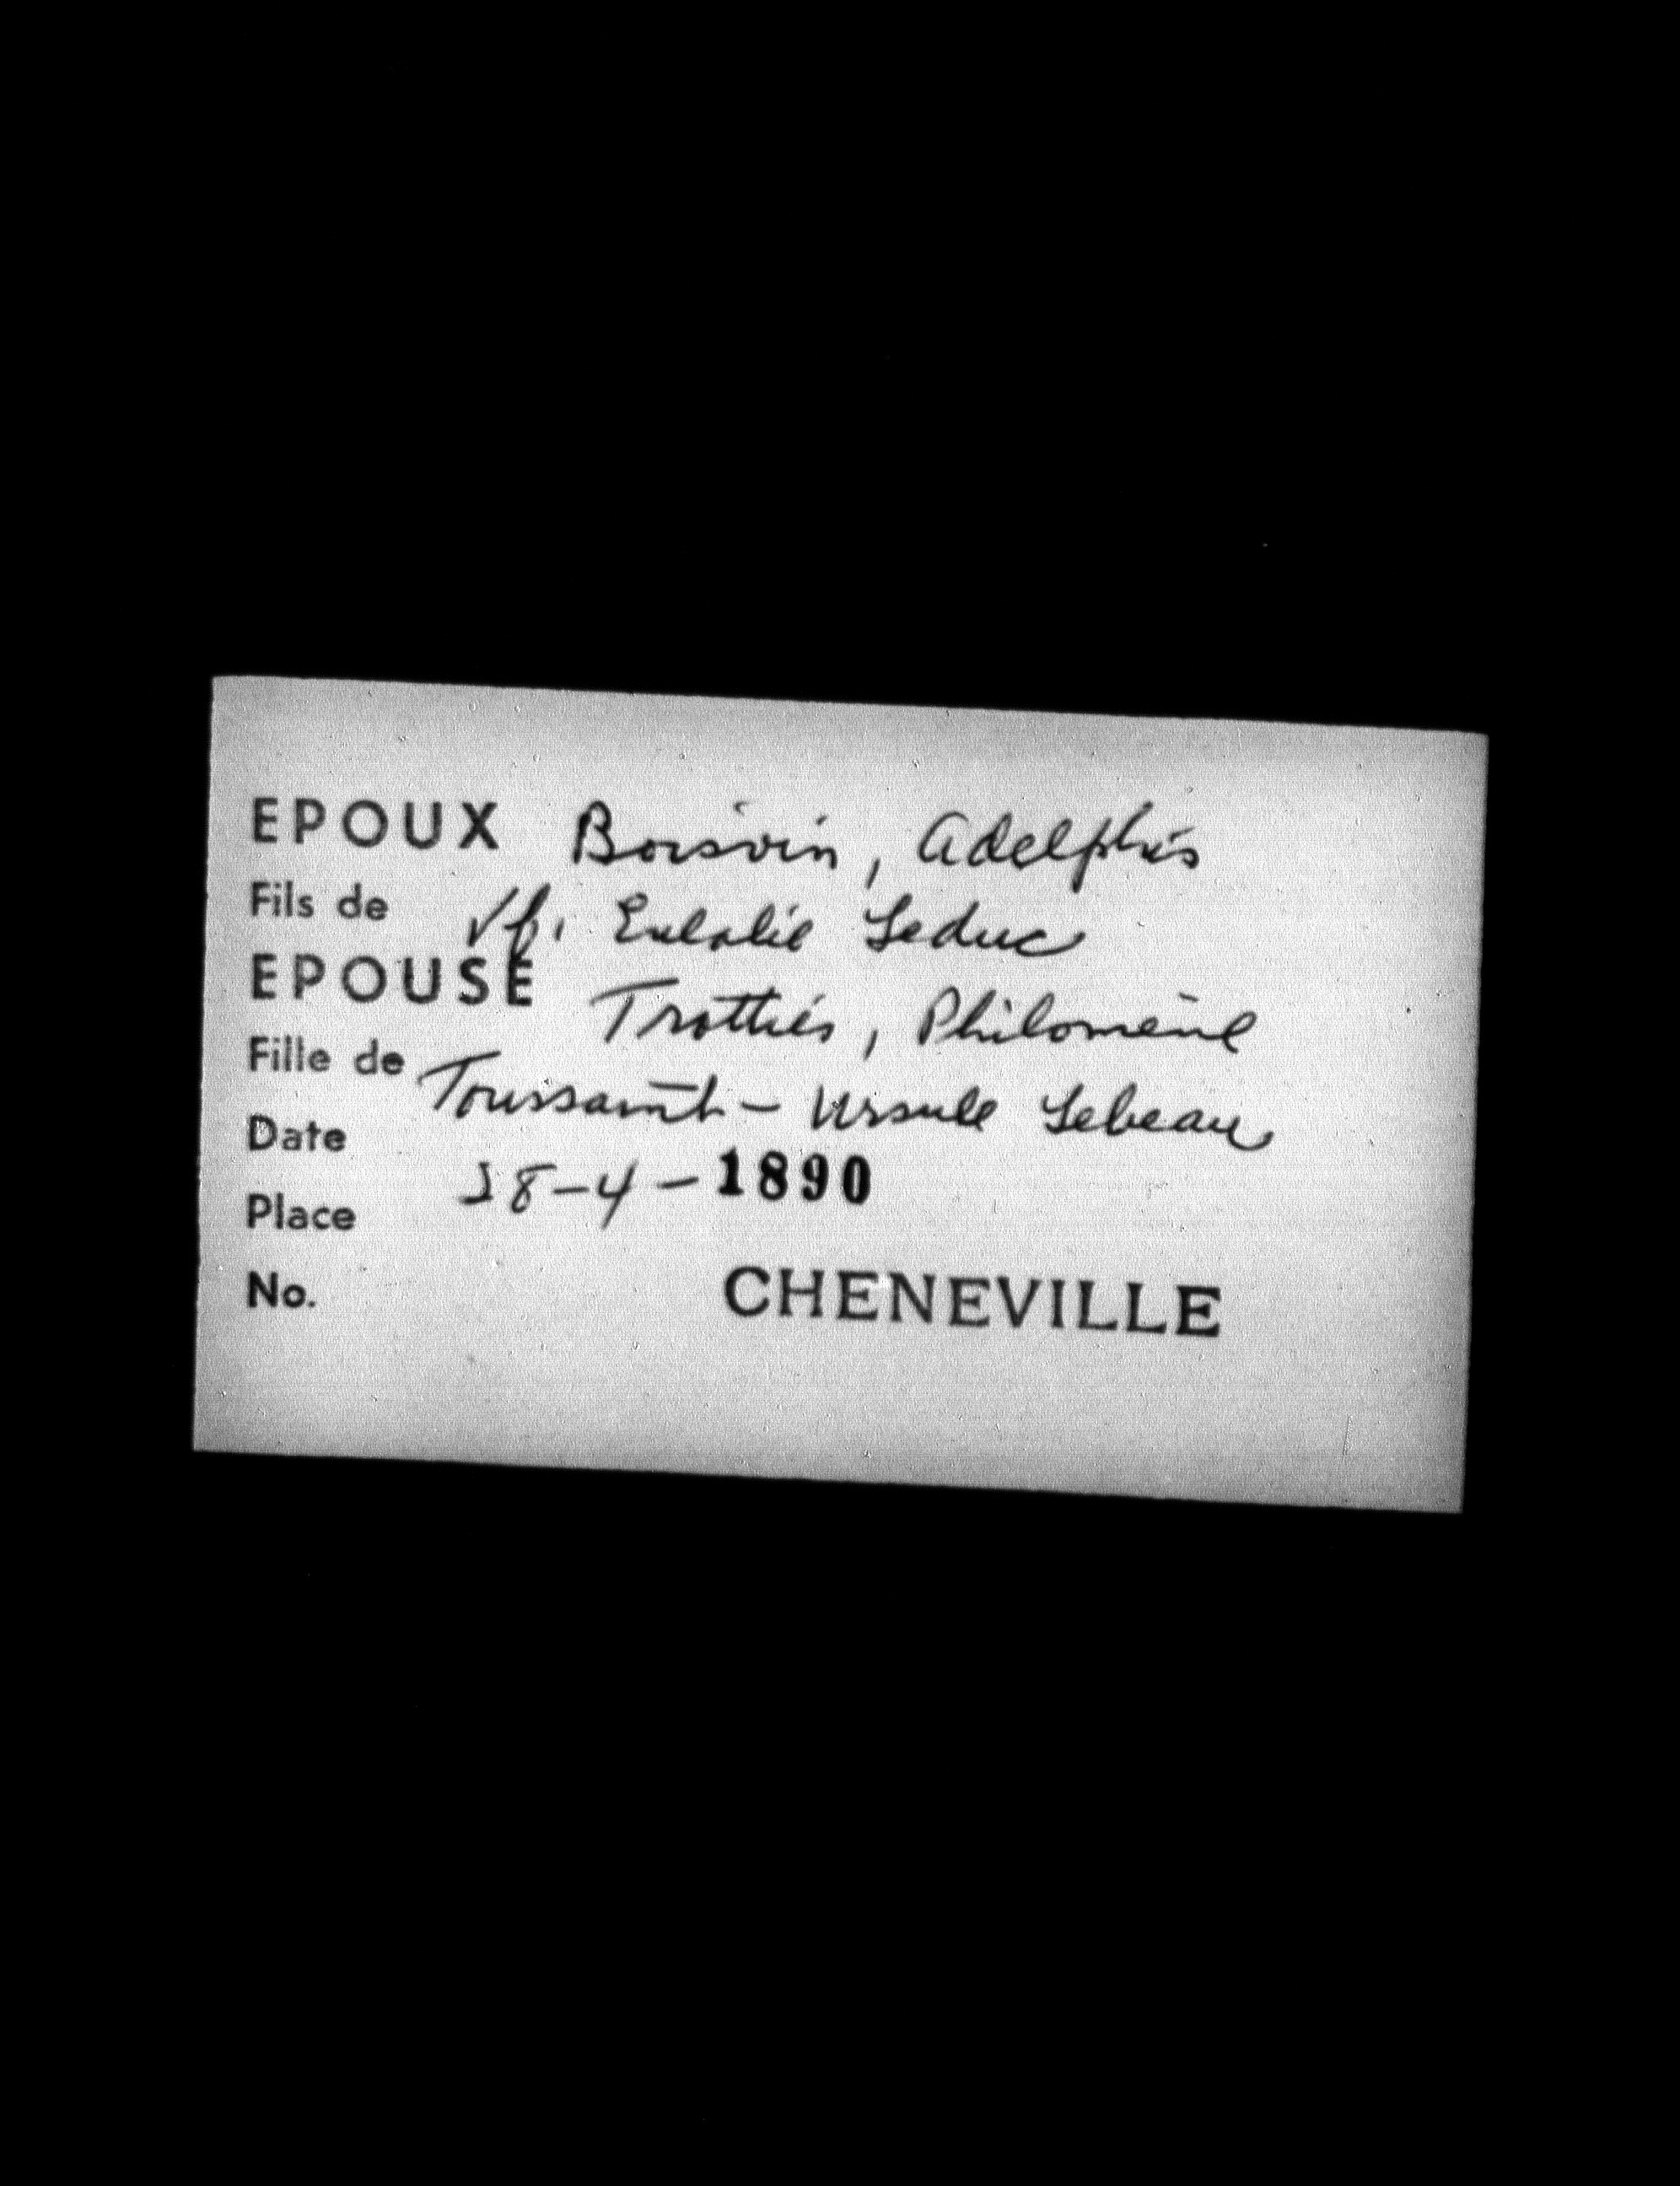 EPOUX Boisvin, Adelphis
Fils de Vf. Eulalie Leduc
EPOUSE Trottier, Philomène
Fille de Toussaint - Ursule Lebeau
Date 28-4-1890
Place
No. CHENEVILLE